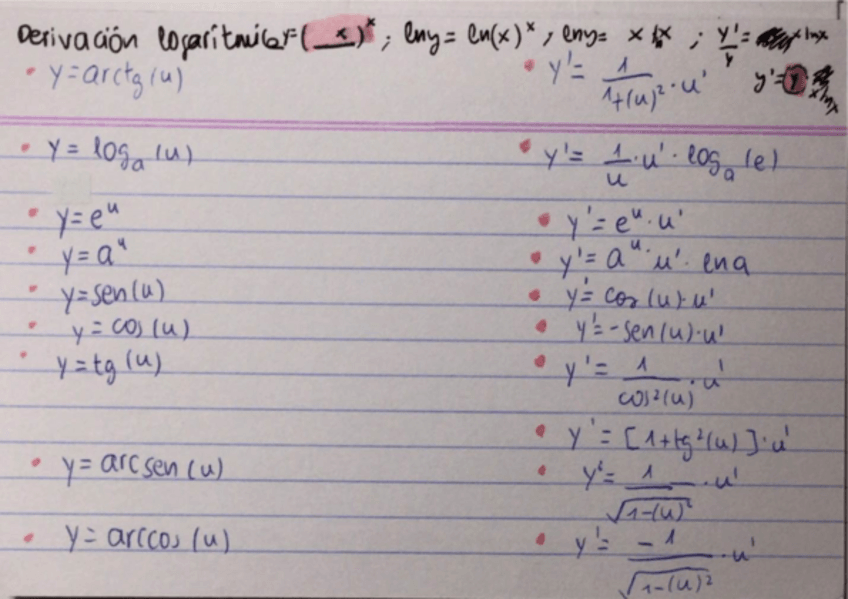 Derivación logarítmica y=( x )ˣ ; lny = ln(x)ˣ ; lny = x lx ; y'/y = x lnx
• y=arctg(u) • y'= 1/(1+(u)²) · u' y'= y x lnx
• y = logₐ(u) • y'= 1/u · u' · logₐ(e)
• y=eᵘ • y'= eᵘ · u'
• y=aᵘ • y'= aᵘ · u' · lna
• y=sen(u) • y'= cos(u) · u'
• y = cos(u) • y'=-sen(u)·u'
• y=tg(u) • y'= 1/cos²(u) · u'
• y'= [1+tg²(u)]·u'
• y=arcsen(u) • y'= 1/√(1-(u)²) · u'
• y= arccos(u) • y'= -1/√(1-(u)²) · u'